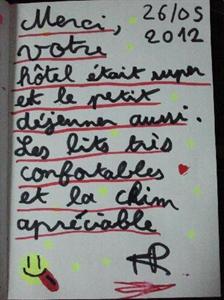 Merci, 26/05
votre 2012
hôtel était super
et le petit
déjeuner aussi.
Les lits très
confortables
et la clim
apréciable